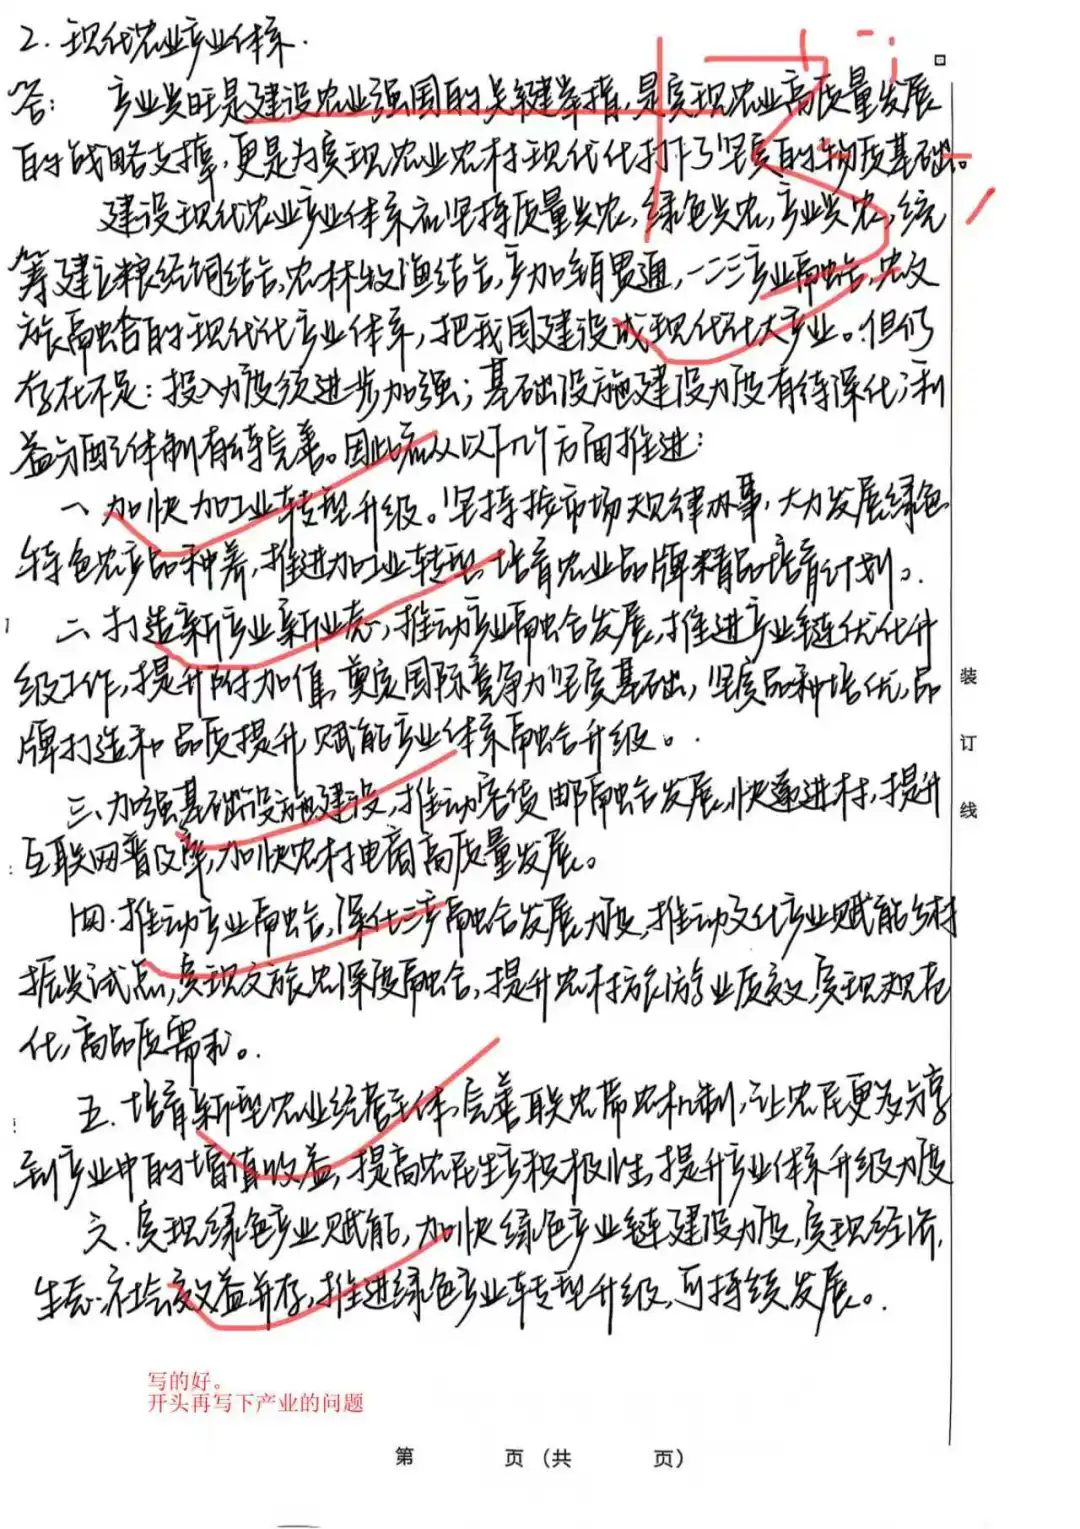 2. 现代农业产业体系.
答: 产业兴旺是建设农业强国的关键举措,是实现农业高质量发展
的战略支撑,更是为实现农业农村现代化打下了坚实的物质基础。
建设现代农业产业体系应坚持质量兴农,绿色兴农,产业兴农,统
筹建立粮经饲结合,农林牧渔结合,产加销贯通,一二三产业融合,农文
旅融合的现代化产业体系,把我国建设成现代化大产业。但仍
存在不足:投入力度须进一步加强;基础设施建设力度有待深化;利
益分配体制有待完善。因此应从以下几个方面推进:
一、加快加工业转型升级。坚持按市场规律办事,大力发展绿色
特色农产品种养,推进加工业转型,培育农业品牌精品培育计划。
二、打造新产业新业态,推动产业融合发展,推进产业链优化升
级工作,提升附加值,奠定国际竞争力坚实基础,坚实品种培优,品
牌打造和品质提升,赋能产业体系融合升级。
三、加强基础设施建设,推动客货邮融合发展,快递进村,提升
互联网普及率,加快农村电商高质量发展。
四、推动产业融合,深化三产融合发展力度,推动文化产业赋能乡村
振兴试点,实现文旅农深度融合,提升农村旅游业质效,实现规范
化,高品质需求。
五、培育新型农业经营主体,完善联农带农机制,让农民更多分享
到产业中的增值收益,提高农民生产积极性,提升产业体系升级力度
六、实现绿色产业赋能,加快绿色产业链建设力度,实现经济,
生态、社会效益并存,推进绿色产业转型升级,可持续发展。
13
写的好。
开头再写下产业的问题
装
订
线
第 页(共 页)